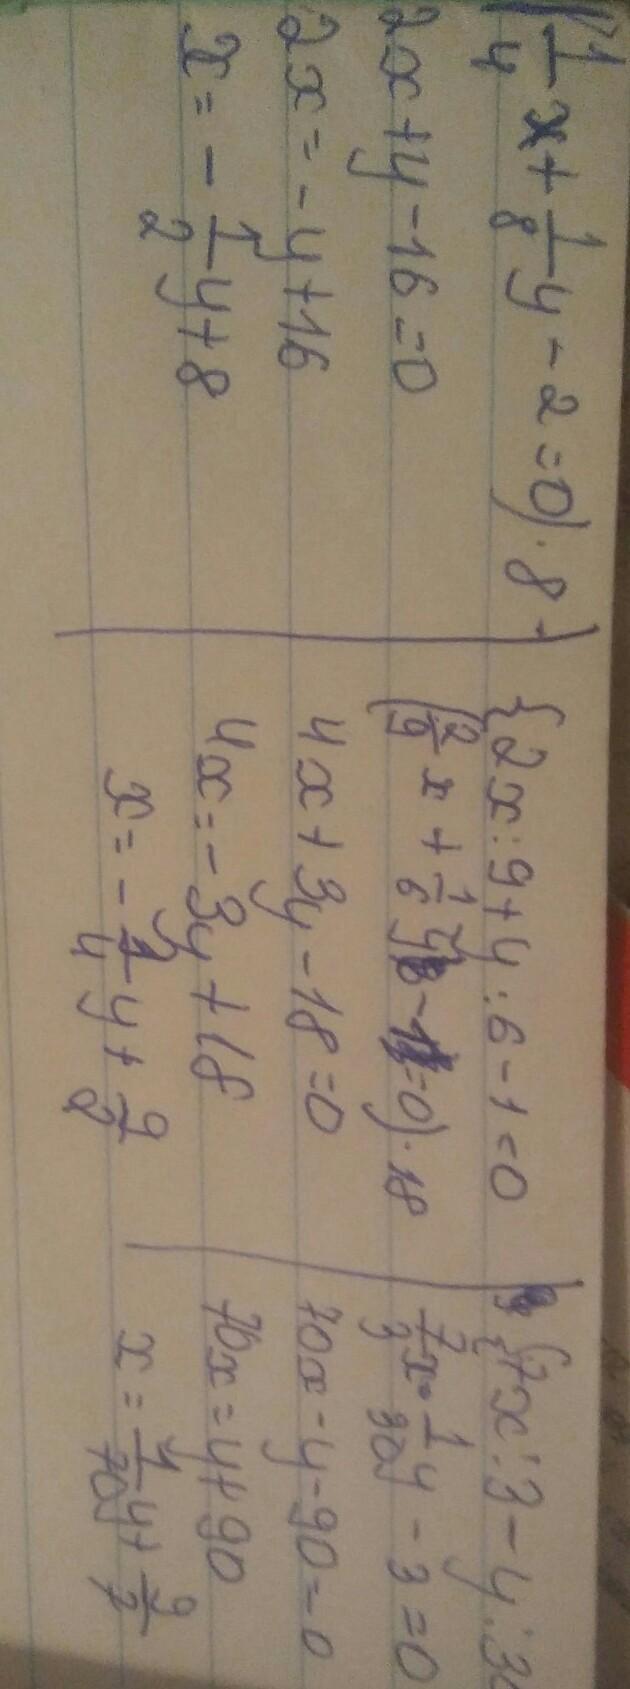 (1/4 x + 1/8 y - 2 = 0) · 8
2x + y - 16 = 0
2x = - y + 16
x = - 1/2 y + 8
{2x : 9 + y : 6 - 1 = 0
(2/9 x + 1/6 y - 1 = 0) · 18
4x + 3y - 18 = 0
4x = - 3y + 18
y + 9/2
{7x : 3 - y : 30
7/3 x - 1/30 y - 3 = 0
70x - y - 90 = 0
70x = y + 90
x = 1/70 y + 9/7